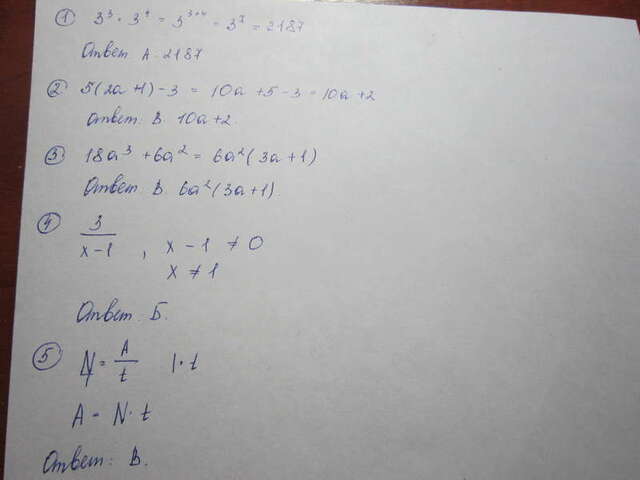 ① 3³ · 3⁴ = 3³⁺⁴ = 3⁷ = 2187
Ответ А. 2187
② 5(2a+1) - 3 = 10a + 5 - 3 = 10a + 2
Ответ: В. 10a + 2.
③ 18a³ + 6a² = 6a²(3a+1)
Ответ: В 6a²(3a+1).
④ 3/(x-1), x - 1 ≠ 0
x ≠ 1
Ответ: Б.
⑤ N = A/t |· t
A = N · t
Ответ: В.